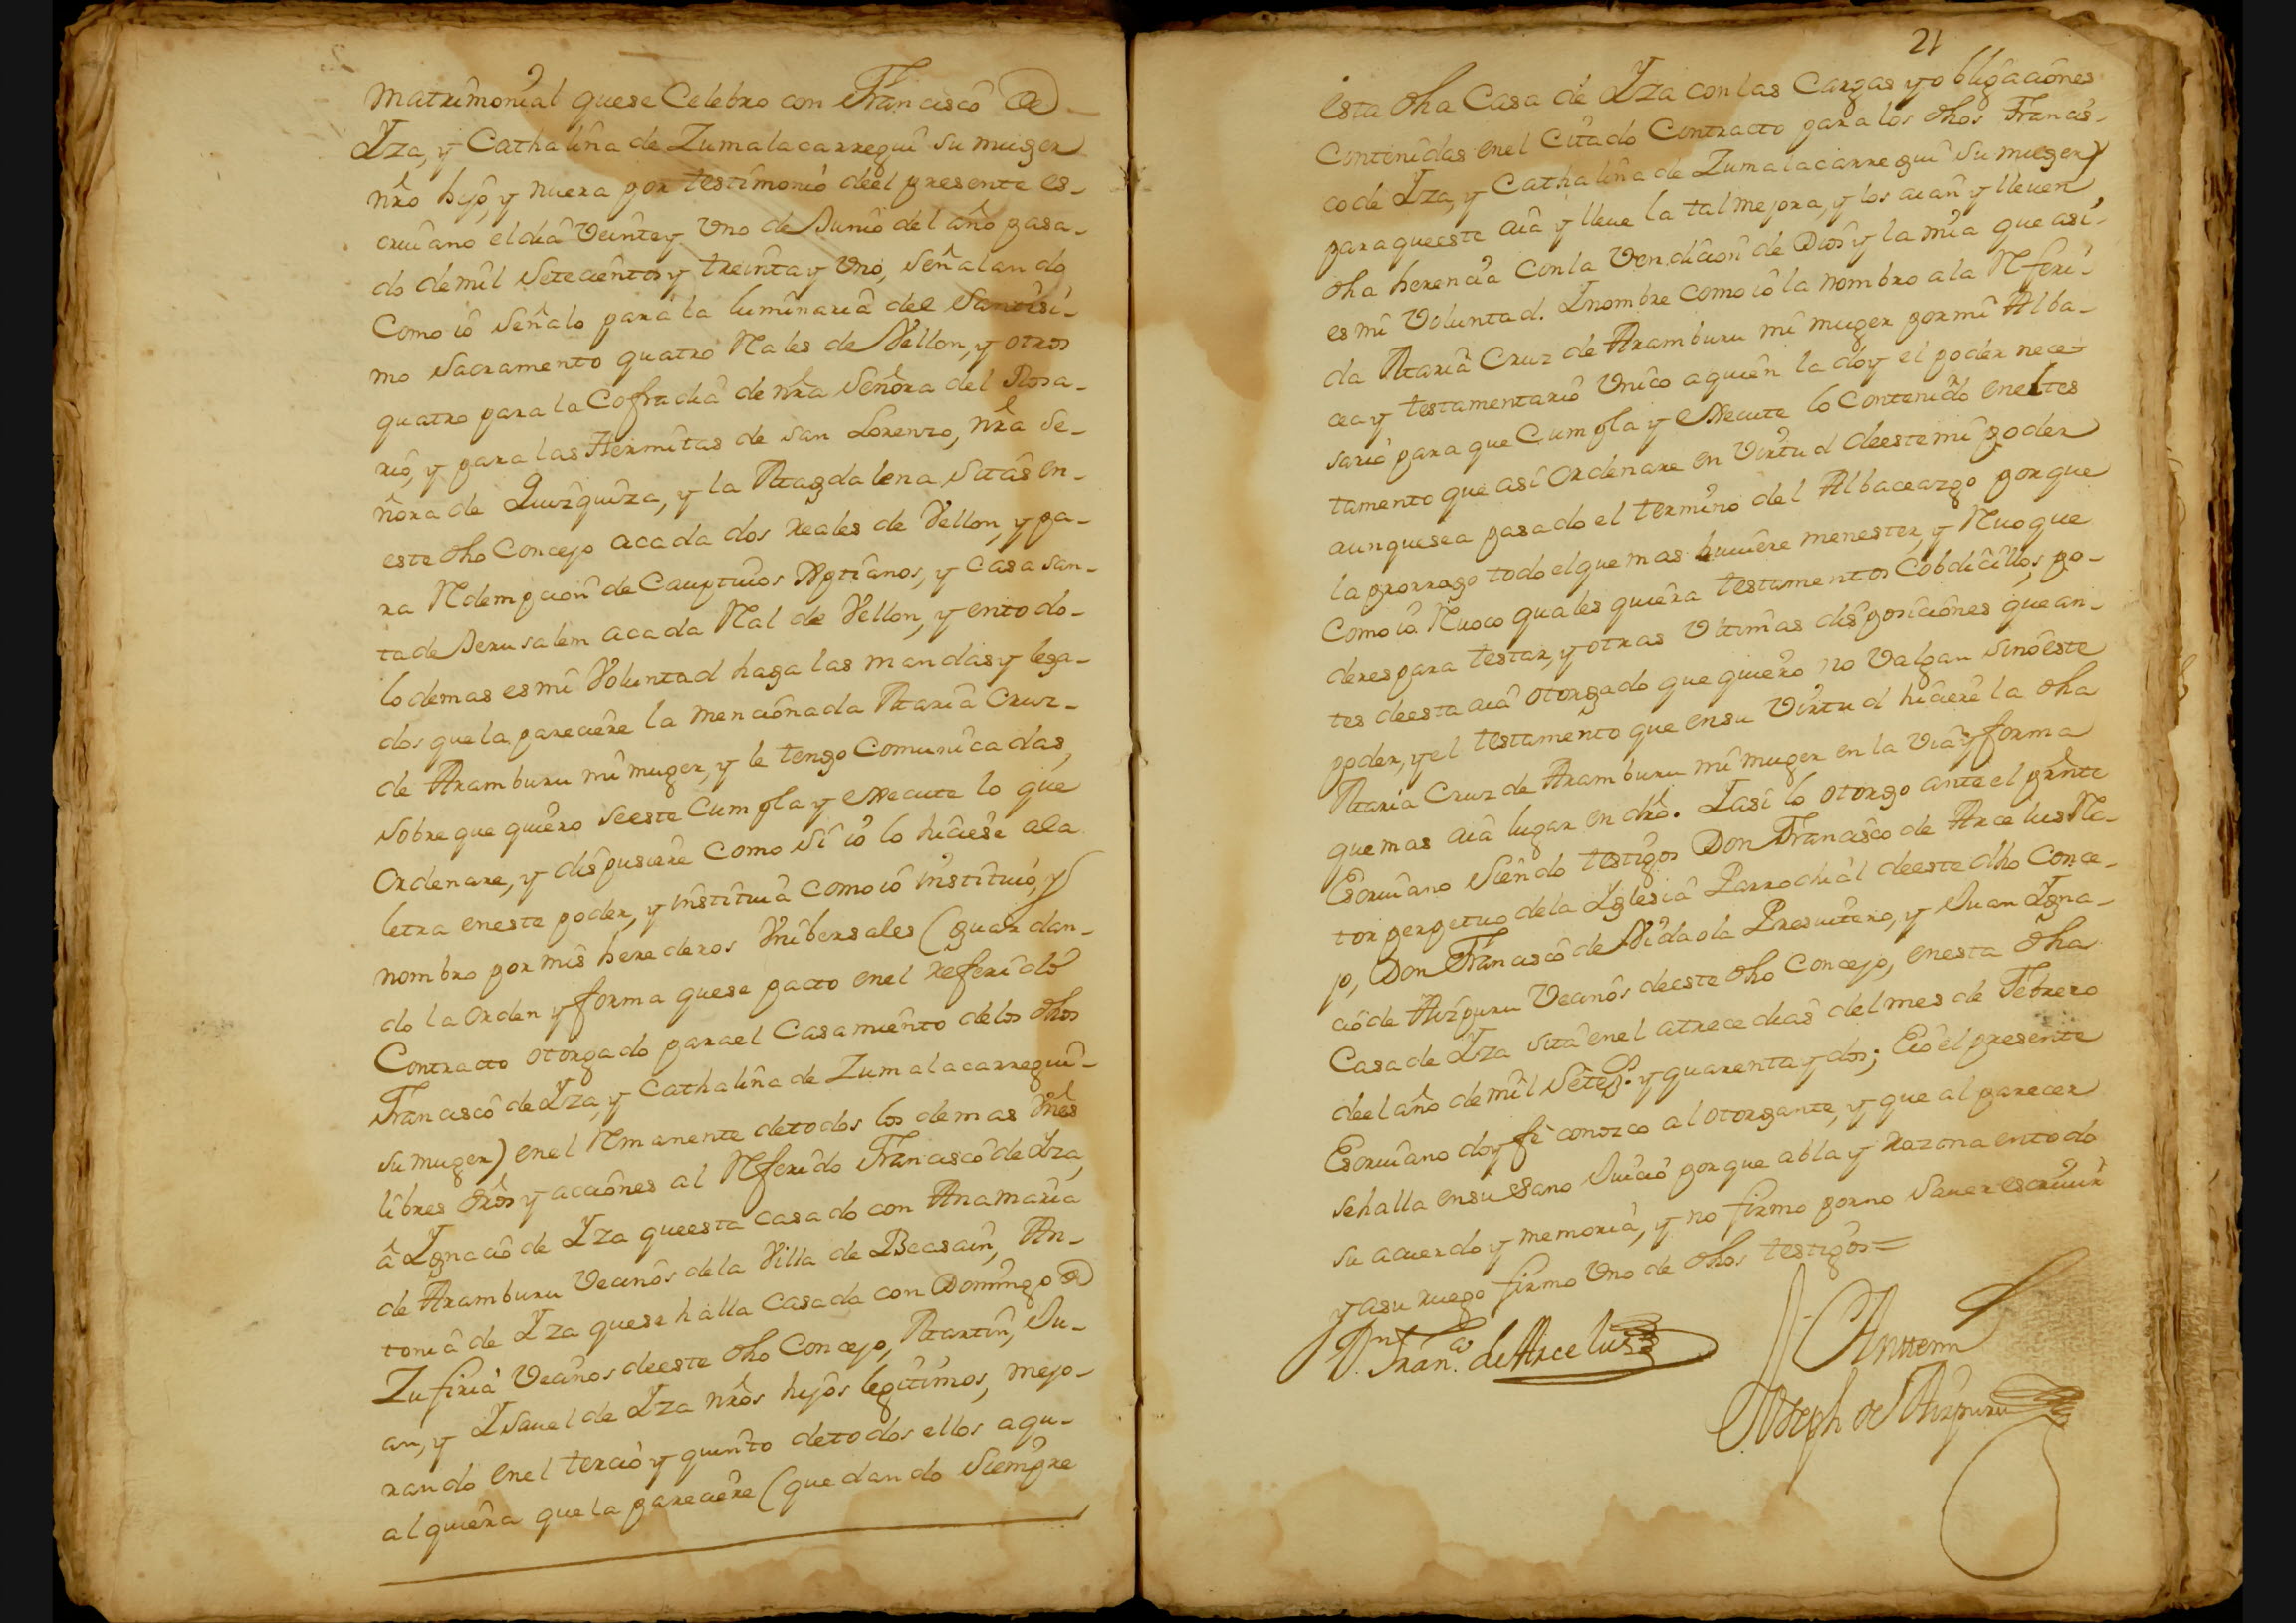 Matrimonial quese Celebro con Francisco de
Yza, y Cathalina de Zumalacarregui su muger
nrõ hijo, y nuera por testimonio deel presente es-
criuano el dia Veinte y Vno de Junio del año pasa-
do de mil Setecientos y treinta y Vno, Señalando
Como io Señalo para la luminaria del Santisi-
mo Sacramento quatro Rales de Vellon, y otros
quatro para la Cofradia de nr̃a Señora del Rosa-
rio, y para las Hermitas de San Lorenzo, nr̃a Se-
ñora de Quizquiza, y la Magdalena Sitas en-
este dho Concejo acada dos reales de Vellon, y pa-
ra Redempcion de Cauptiuos Xptianos, y Casa San-
ta de Jerusalem acada Real de Vellon, y entodo-
lodemas es mi Voluntad haga las mandas y lega-
dos quela pareciere la mencionada Maria Cruz-
de Aramburu mi muger, y le tengo Comunicadas,
Sobre que quiero seeste Cumpla y execute lo que
Ordenare, y dispusiere como Si io lo hiciese ala
letra eneste poder, y instituia como io instituio, y
nombro por mis herederos Vnibersales (guardan-
do la Orden y forma quese pacto enel referido
Contracto otorgado parael Casamiento delos dhos
Francisco de Yza, y Cathalina de Zumalacarregui-
su muger) enel Remanente detodos los demas Vnes
libres drõs y acciones al Referido Francisco de Yza,
â Ygnacio de Yza queesta casado con Anamaria
de Aramburu Vecinos dela Villa de Beasain, An-
tonia de Yza quese halla Casada con Domingo de
Zufiria Vecinos deeste dho Concejo, Martin, Ju-
an, y Ysauel de Yza nrõs hijos legitimos, mejo-
rando enel tercio y quinto detodos ellos aqu-
alquiera quela pareciere (quedando Siempre
21
esta dha Casa de Yza conlas Cargas y obligaciones
Contenidas enel Citado Contracto para los dhos Francis-
co de Yza, y Cathalina de Zumalacarregui su muger)
paraqueeste aia y lleue la tal mejora, y los aian y lleuen
dha herencia conla Vendicion de Dios y la mia que asi-
es mi Voluntad. Ynombre como io la nombro ala Referi-
da Maria Cruz de Aramburu mi muger por mi Alba-
cea y testamentario Vnico aquien la doy el poder nece-
sario para que Cumpla y execute lo Contenido eneltes
tamento que asi Ordenare en Virtud deeste mi poder
aunquesea pasado el termino del Albaceazgo porque
la prorrogo todo elque mas huuiere menester, y Reuoque
Como io Reuoco quales quiera testamentos Cobdicillos, po-
deres para testar, y otras Vltimas disposiciones quean-
tes deesta aia otorgado que quiero no Valgan Sinoeste
poder, y el testamento que ensu Virtud hiciere la dha
Maria Cruz de Aramburu mi muger en la Via y forma
quemas aia lugar en drõ. Yasi lo otorgo anteel prñte
Escriuano Siendo testigos Don Francisco de Arcelus Rec-
tor perpetuo dela Yglesia Parrochial deeste dho Conce-
jo, Don Francisco de Vidaola Presuitero, y Juan Ygna-
cio de Aizpuru Vecinos deeste dho Concejo, enesta dha
Casa de Yza sita enel atrece dias del mes de Febrero
deel año de mil Setez.s y quarenta y dos; Eio el presente
Escriuano doy fê conozco al otorgante, y que al parecer
sehalla ensu sano Juicio porque abla y razona entodo
su acuerdo y memoria, y no firmo porno Sauer escriuir
y asu ruego firmo Vno de dhos testigos=
D.n Fran.co de Arcelus
Anttemi
Joseph de Aizpuru